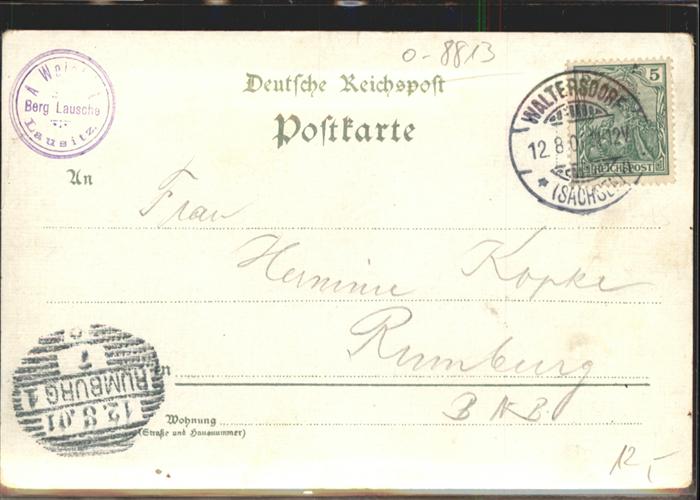 0-8813
Deutsche Reichspost
Postkarte
A W
Berg Lausche
Lausitz.
WALTERSDORF
12.8.0 12V.
* (SACHSEN)
5
REICHSPOST
An
Frau
Hermine Kopke
Rumburg
in
B N B
RUMBURG 1
12.8.01
Wohnung
(Straße und Hausnummer)
12,-